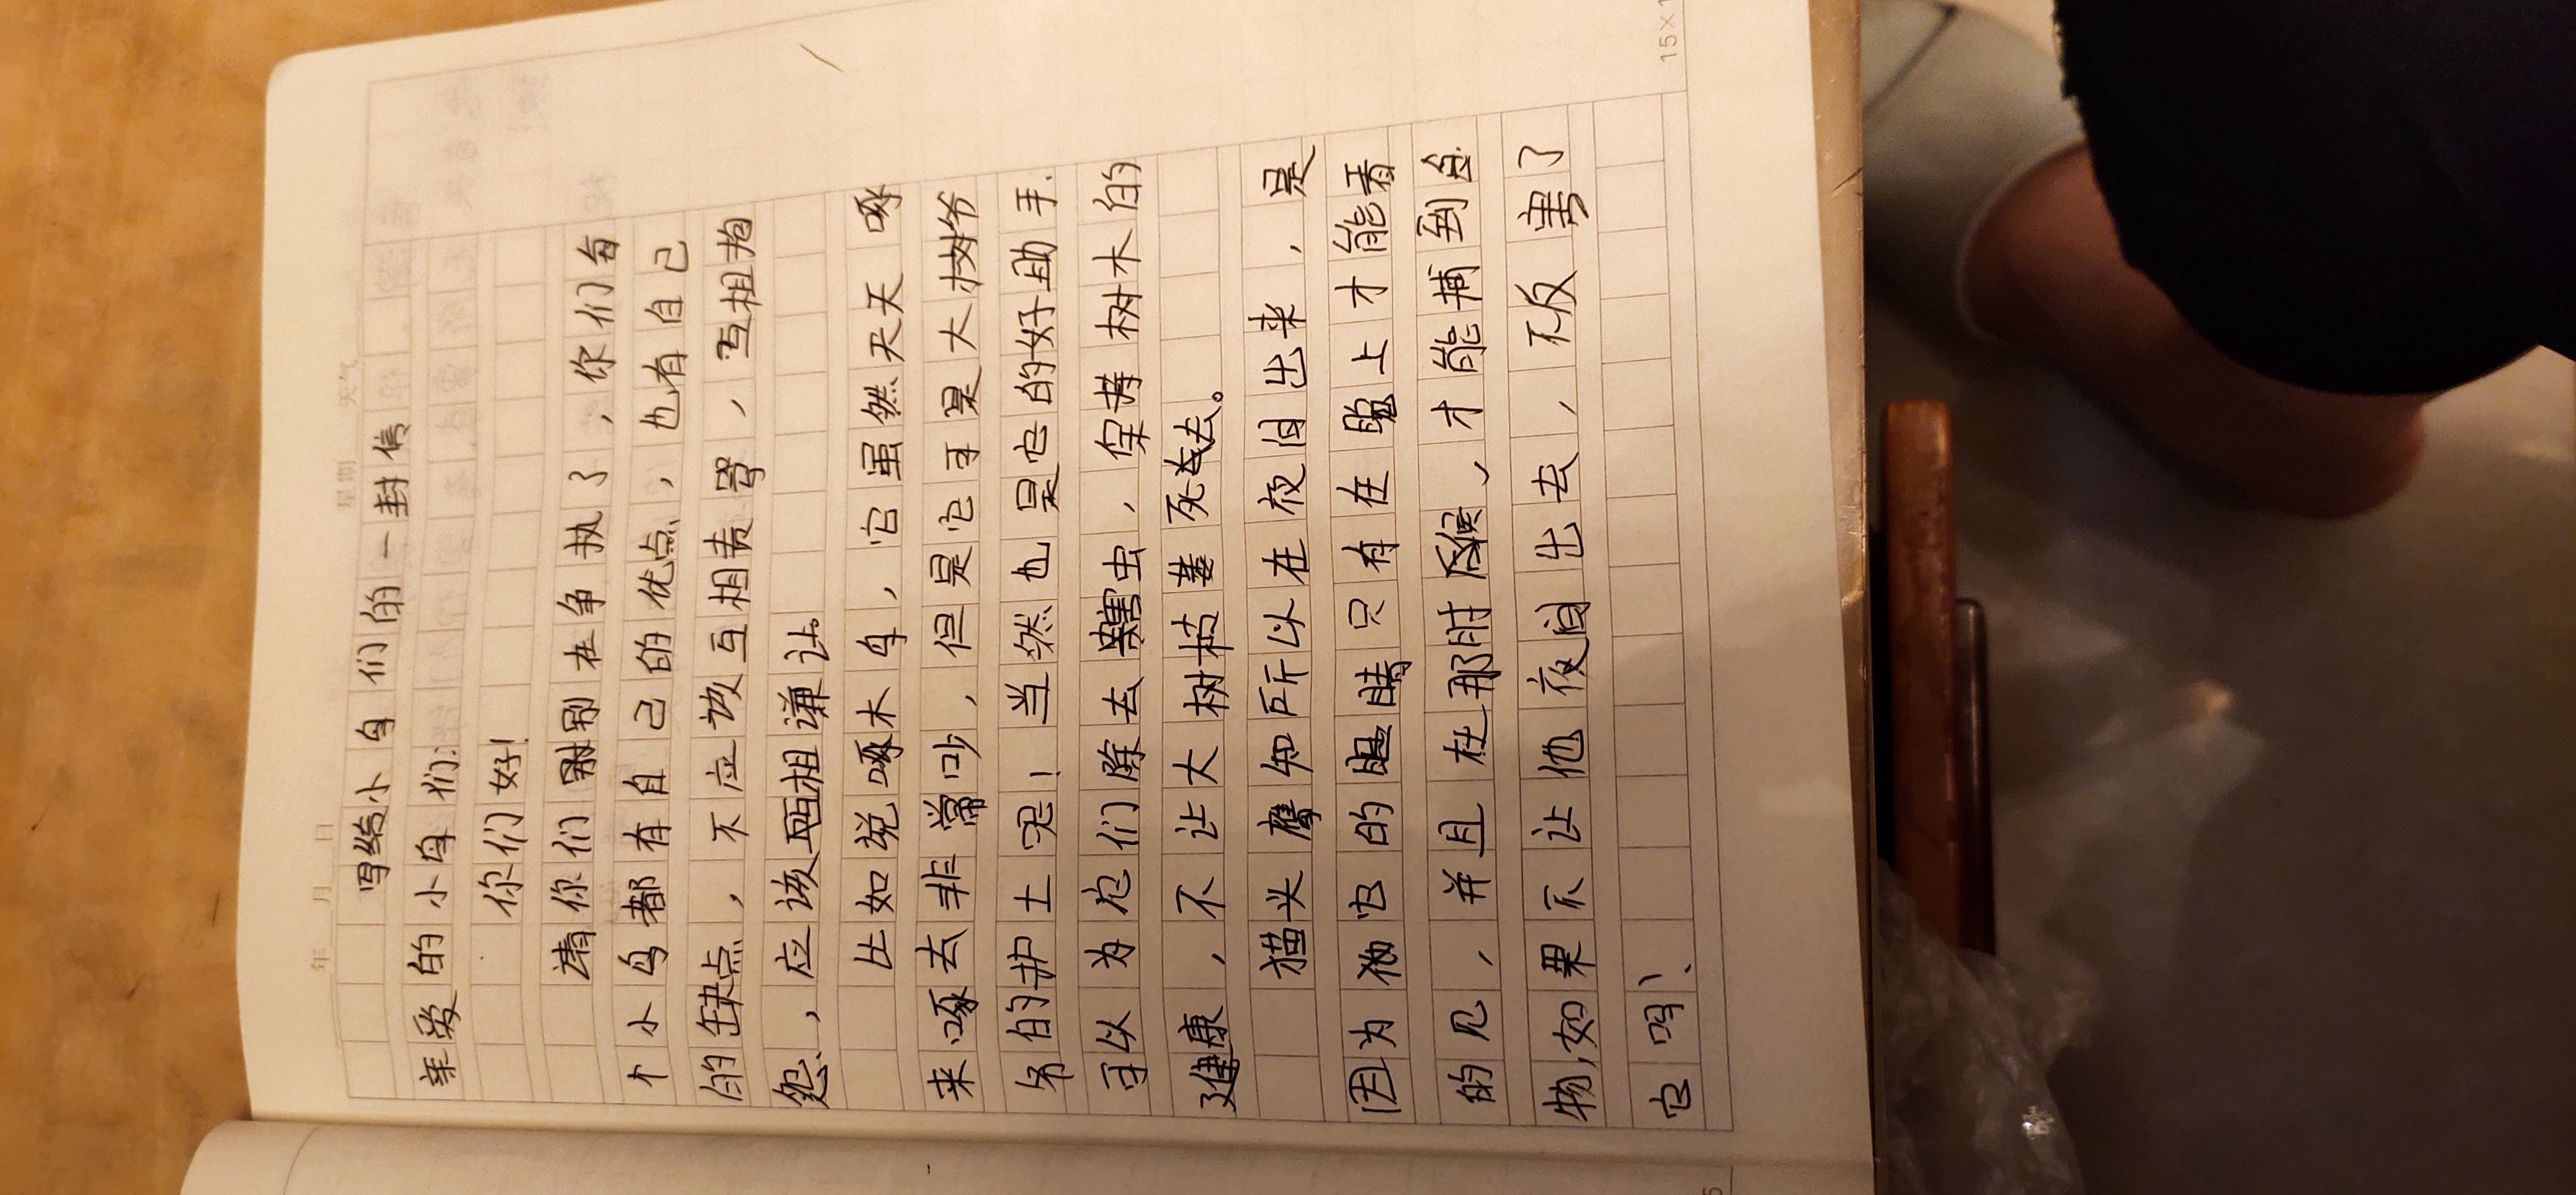 年 月 日 星期 天气
写给小鸟们的一封信
亲爱的小鸟们:
你们好!
请你们别在争执了,你们每
个小鸟都有自己的优点,也有自己
的缺点,不应该互相责骂,互相抱
怨,应该互相谦让。
比如说啄木鸟,它虽然天天啄
来啄去非常吵,但是它可是大树爷
爷的护士呢!当然也是它的好助手.
可以为它们除去害虫,保持树木的
健康,不让大树枯萎死去。
猫头鹰知所以在夜间出来,是
因为它的眼睛只有在晚上才能看
的见,并且在那时候,才能捕到食
物,如果不让他夜间出去,不反害了
它吗?
15×1